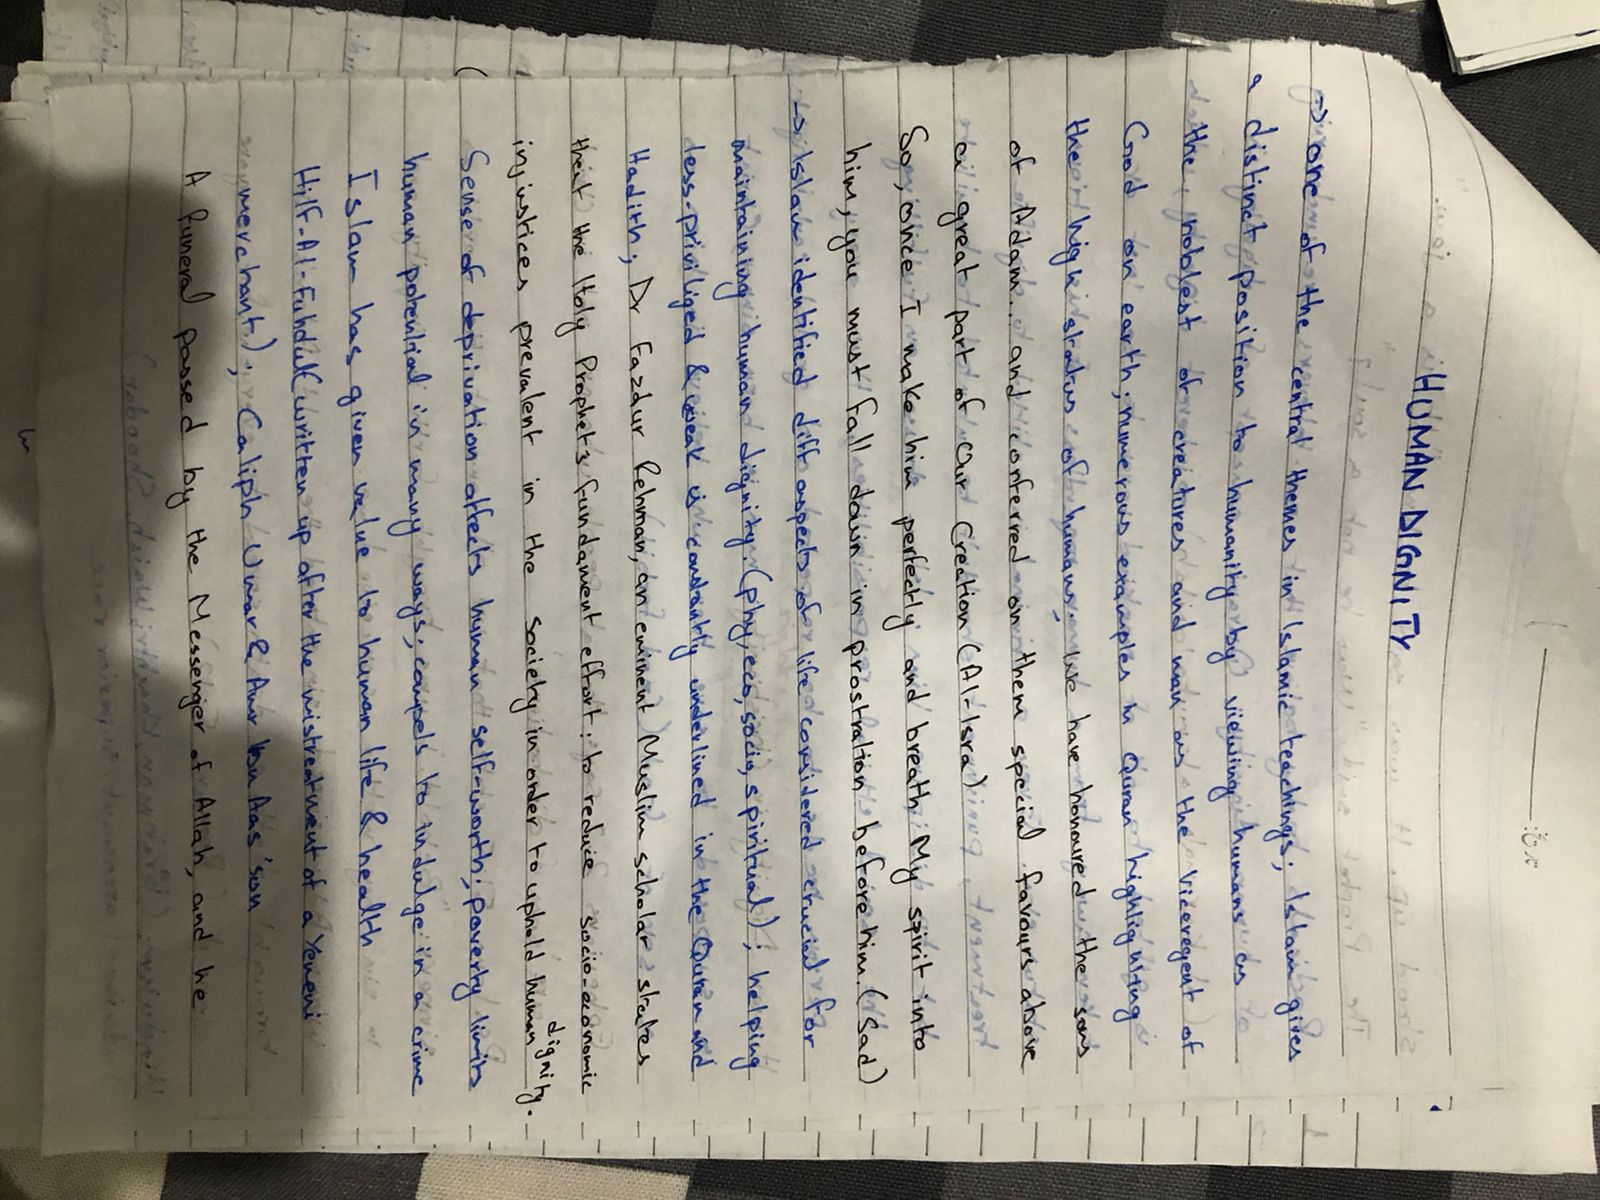 HUMAN DIGNITY
→ one of the central themes in Islamic teachings; Islam gives
a distinct position to humanity by viewing humans as
the noblest of creatures and man as the viceregent of
God on earth; numerous examples in Quran highlighting
the high status of humans; we have honoured the sons
of Adam... and conferred on them special favours above
a great part of Our Creation (Al-Isra)
So, once I make him perfectly and breath My spirit into
him, you must fall down in prostration before him. (Sad)
→ Islam identified diff aspects of life considered crucial for
maintaining human dignity (phy, eco, socio, spiritual); helping
less-priviliged & weak is constantly underlined in the Quran and
Hadith; Dr Fazdur Rehman, an eminent Muslim scholar states
that the Holy Prophets fundament effort: to reduce socio-economic
injustices prevalent in the society in order to uphold human dignity.
Sense of deprivation affects human self-worth; poverty limits
human potential in many ways; compels to indulge in a crime
Islam has given value to human life & health
Hilf-Al-Fuhdul (written up after the mistreatment of a Yemeni
merchant); Caliph Umar & Amr bn Aas' son
A funeral passed by the Messenger of Allah, and he